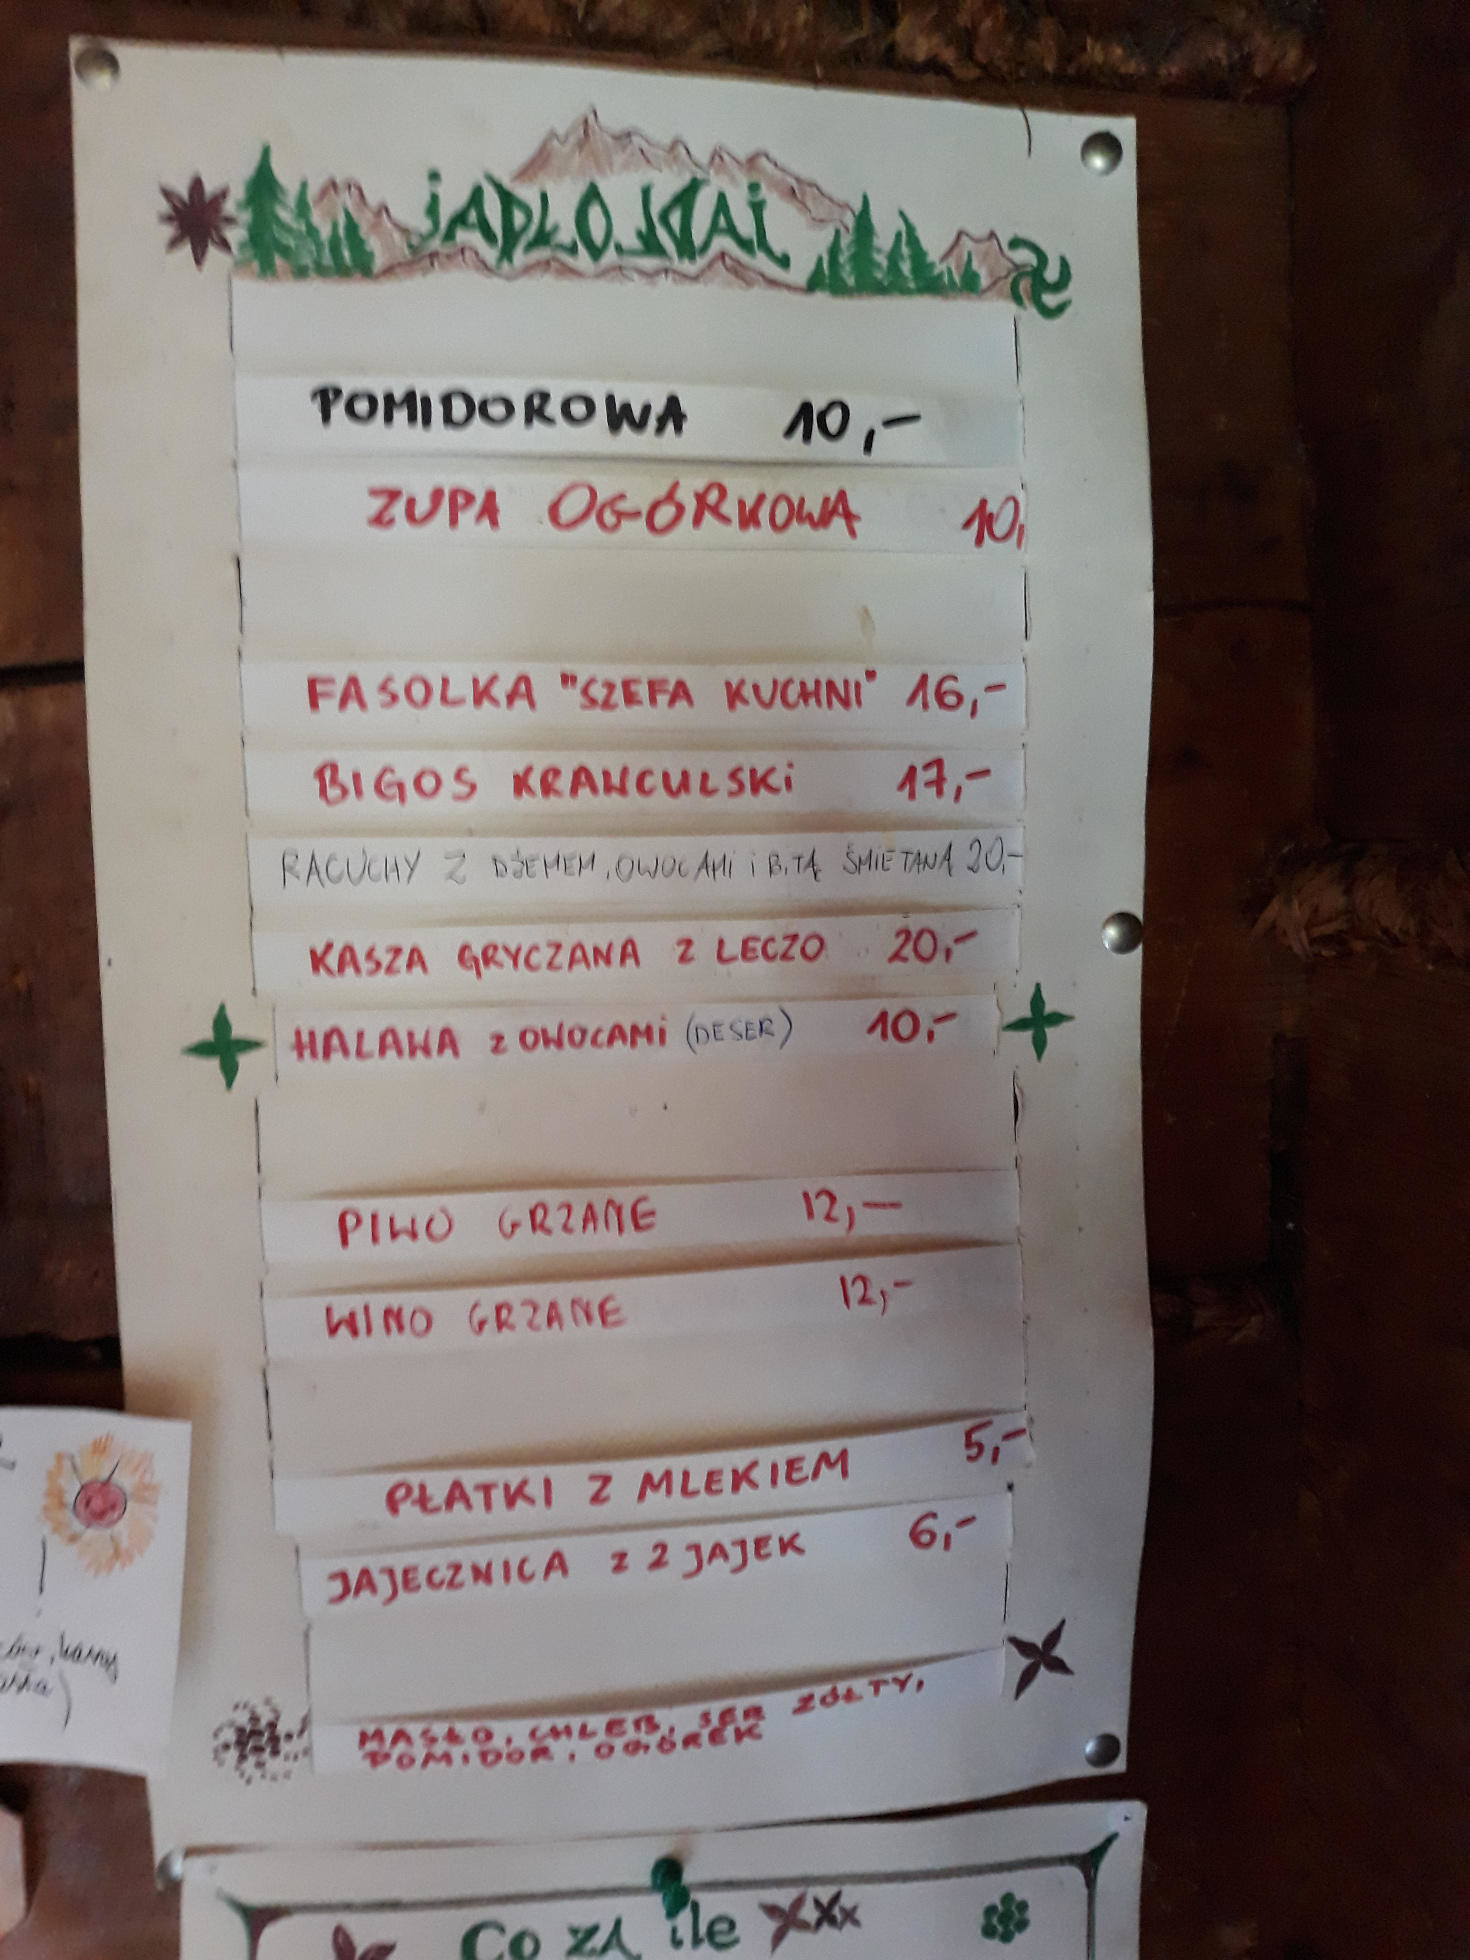 JADŁODAJ
POMIDOROWA 10,-
ZUPA OGÓRKOWA 10,
FASOLKA "SZEFA KUCHNI" 16,-
BIGOS KRAWCULSKI 17,-
RACUCHY Z DŻEMEM, OWOCAMI i BITĄ ŚMIETANĄ 20,-
KASZA GRYCZANA Z LECZO 20,-
HALAWA z OWOCAMI (DESER) 10,-
PIWO GRZANE 12,-
WINO GRZANE 12,-
PŁATKI Z MLEKIEM 5,-
JAJECZNICA z 2 JAJEK 6,-
MASŁO, CHLEB, SER ŻÓŁTY,
POMIDOR, OGÓREK
Co za ile